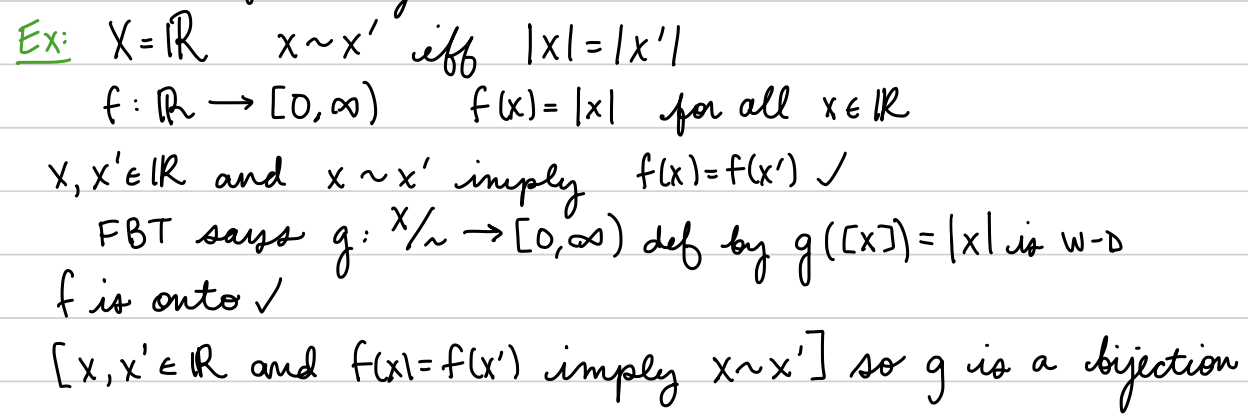 Ex: X = ℝ x ~ x' iff |x| = |x'|
f : ℝ → [0, ∞) f(x) = |x| for all x ∈ ℝ
x, x' ∈ ℝ and x ~ x' imply f(x) = f(x') ✓
FBT says g : X/~ → [0, ∞) def by g([x]) = |x| is W-D
f is onto ✓
[x, x' ∈ ℝ and f(x) = f(x') imply x ~ x'] so g is a bijection